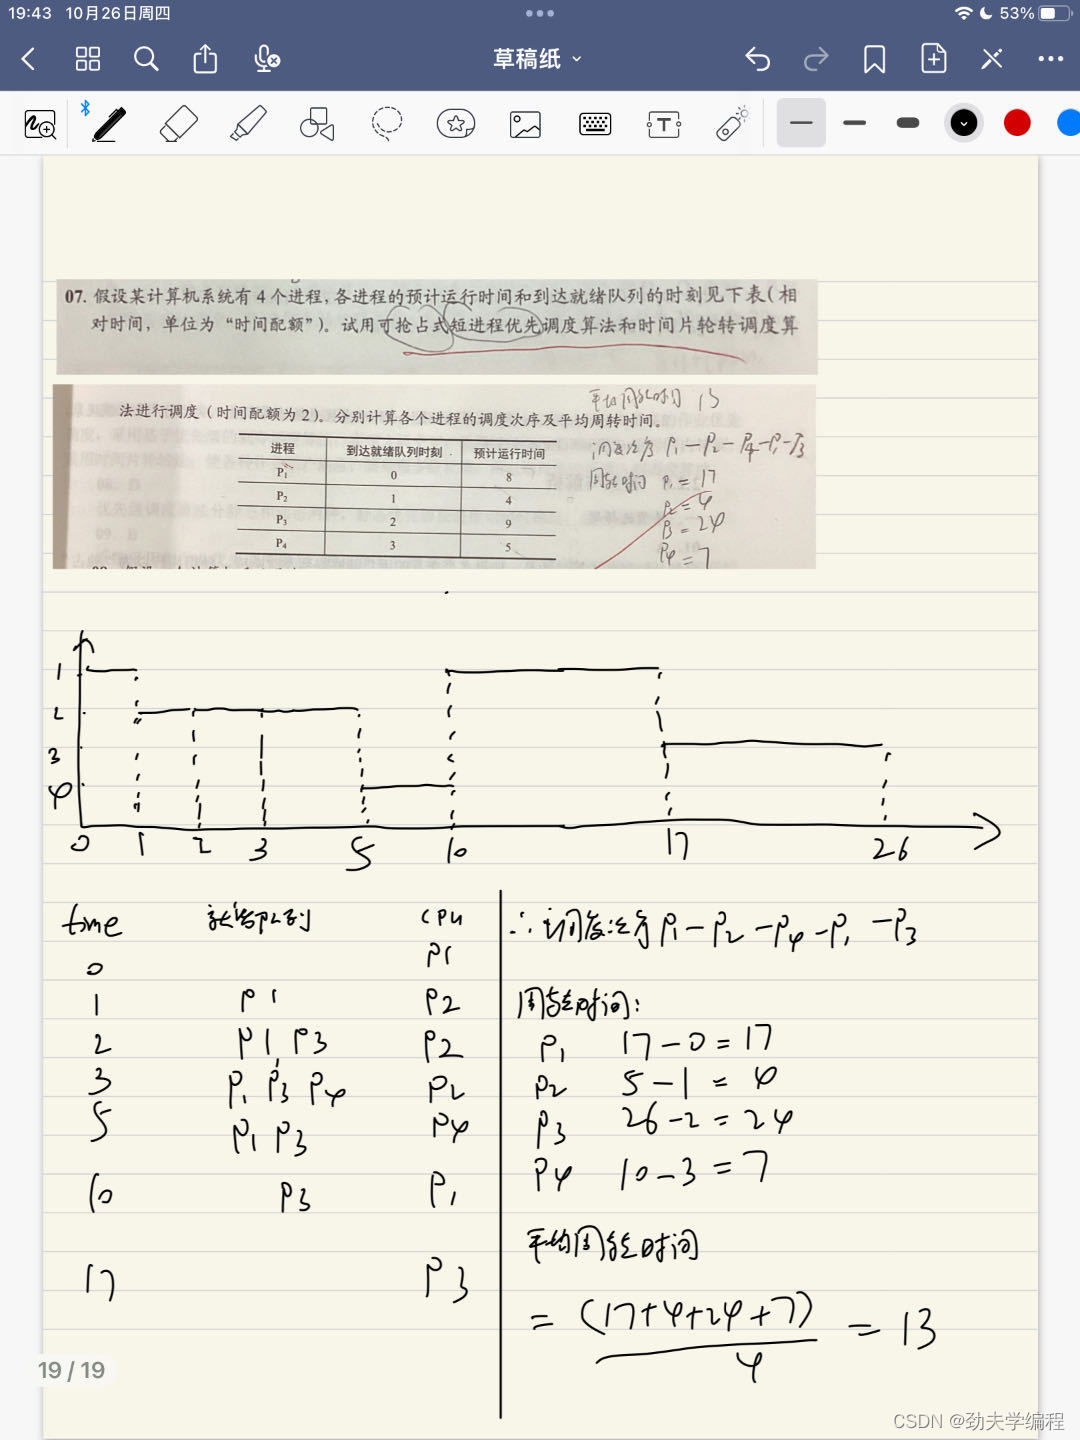 19:43 10月26日周四
53%
草稿纸
07. 假设某计算机系统有 4 个进程，各进程的预计运行时间和到达就绪队列的时刻见下表（相
对时间，单位为“时间配额”）。试用可抢占式短进程优先调度算法和时间片轮转调度算
法进行调度（时间配额为 2）。分别计算各个进程的调度次序及平均周转时间。
平均周转时间 13
进程 到达就绪队列时刻 预计运行时间
P1 0 8
P2 1 4
P3 2 9
P4 3 5
调度次序 P1-P2-P4-P1-P3
周转时间 P1=17
P2=4
P3=24
P4=7
1
2
3
4
0 1 2 3 5 10 17 26
time 就绪队列 CPU
0 P1
1 P1 P2
2 P1, P3 P2
3 P1 P3 P4 P2
5 P1 P3 P4
10 P3 P1
17 P3
∴调度次序 P1-P2-P4-P1-P3
周转时间:
P1 17-0=17
P2 5-1=4
P3 26-2=24
P4 10-3=7
平均周转时间
= (17+4+24+7) = 13
4
19/19
CSDN @劲夫学编程